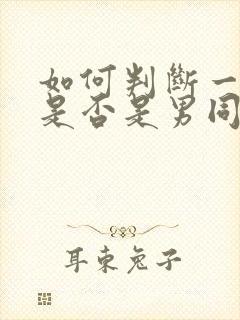 如何判斷一
是否是男同
耳東兔子